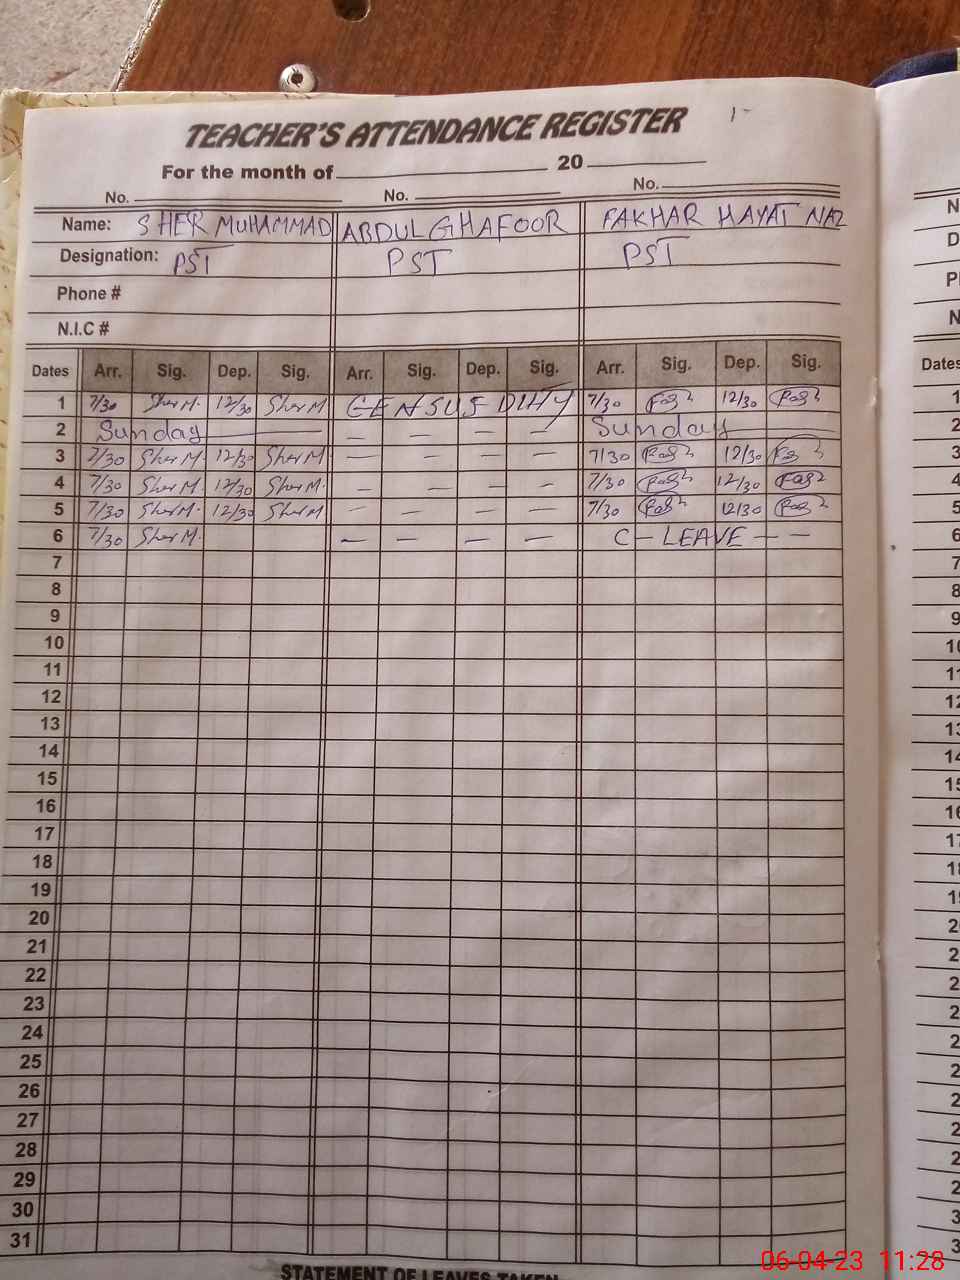 1-
TEACHER'S ATTENDANCE REGISTER
For the month of 20
No. No. No.
Name: SHER MUHAMMAD ABDUL GHAFOOR FAKHAR HAYAT NAZ
Designation: PST PST PST
Phone #
N.I.C #
Dates Arr. Sig. Dep. Sig. Arr. Sig. Dep. Sig. Arr. Sig. Dep. Sig. Dates
1 7/30 Sher M. 12/30 Sher M CENSUS DUTY 7/30 12/30
2 Sunday — — — — Sunday
3 7/30 Sher M. 12/30 Sher M — — — — 7/30 12/30
4 7/30 Sher M. 12/30 Sher M. — — — — 7/30 12/30
5 7/30 Sher M. 12/30 Sher M — — — — 7/30 12/30
6 7/30 Sher M. — — — — C - LEAVE - -
7
8
9
10
11
12
13
14
15
16
17
18
19
20
21
22
23
24
25
26
27
28
29
30
31
STATEMENT OF LEAVES TAKEN
06-04-23 11:28